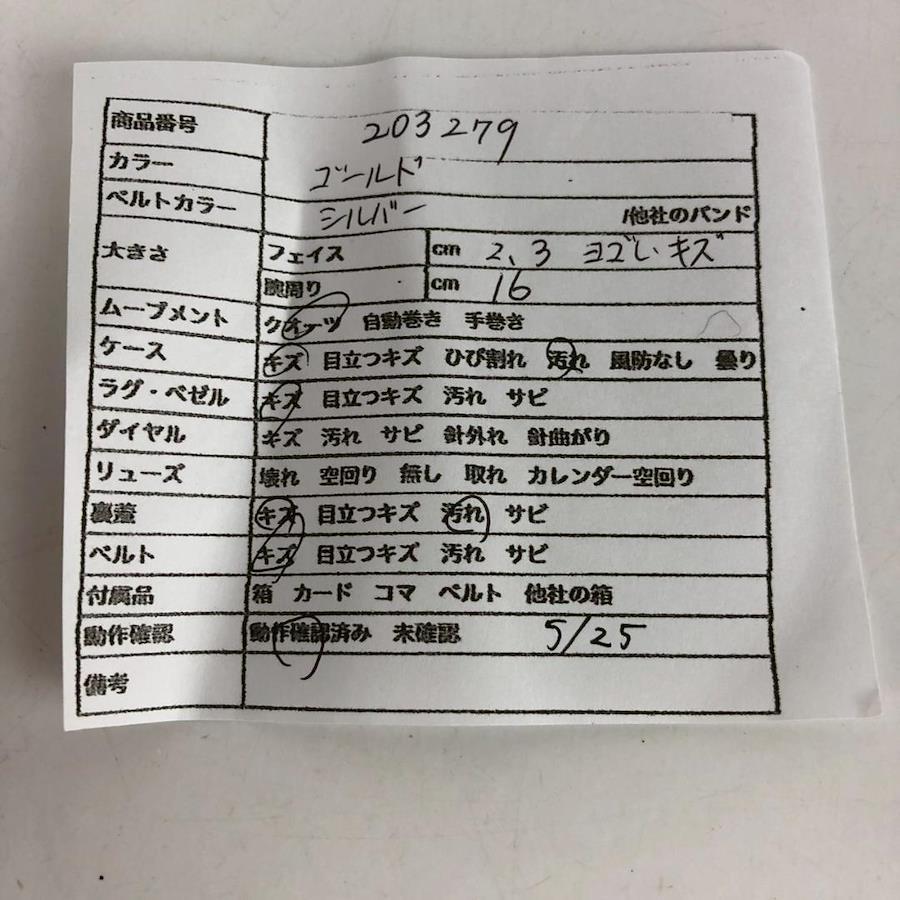 商品番号 203279
カラー ゴールド
ベルトカラー シルバー /他社のバンド
大きさ フェイス cm 2、3 ヨゴレ キズ
腕周り cm 16
ムーブメント クオーツ 自動巻き 手巻き
ケース キズ 目立つキズ ひび割れ 汚れ 風防なし 曇り
ラグ・ベゼル キズ 目立つキズ 汚れ サビ
ダイヤル キズ 汚れ サビ 針外れ 針曲がり
リューズ 壊れ 空回り 無し 取れ カレンダー空回り
裏蓋 キズ 目立つキズ 汚れ サビ
ベルト キズ 目立つキズ 汚れ サビ
付属品 箱 カード コマ ベルト 他社の箱
動作確認 動作確認済み 未確認 5/25
備考